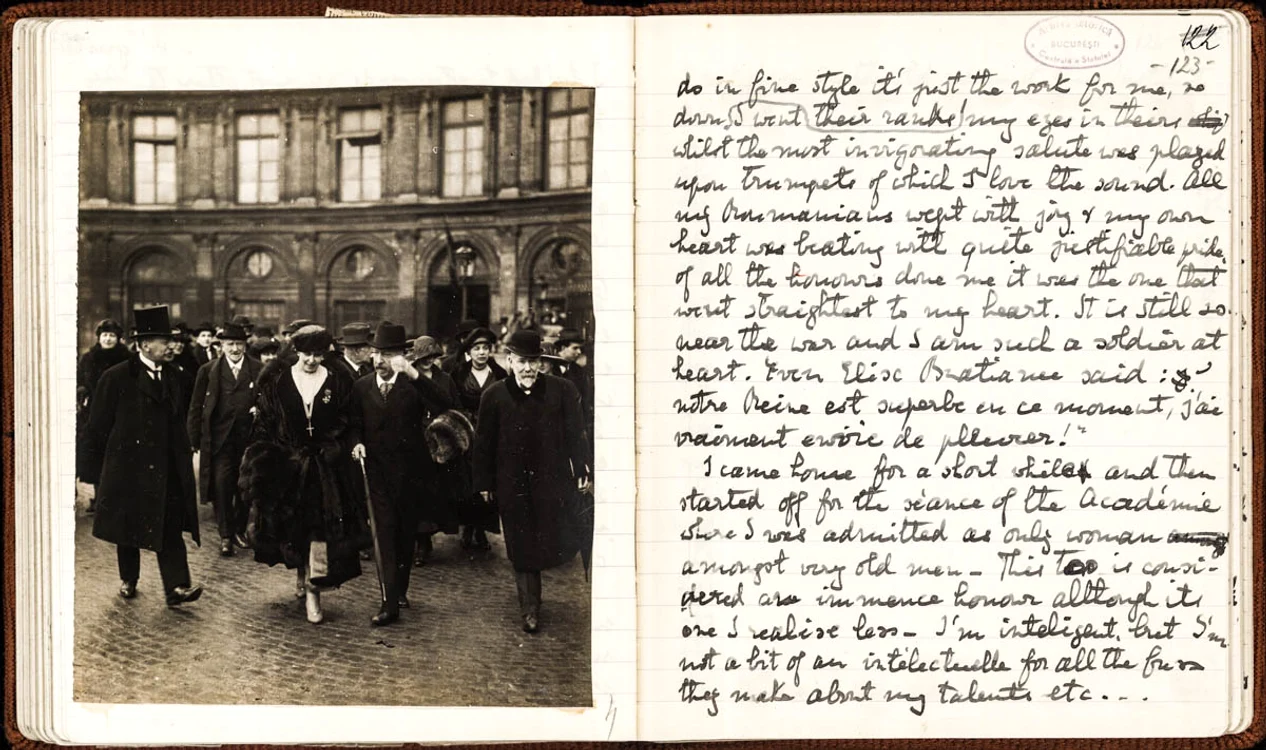 122
-123-
do in fine style it's just the work for me, so
down I went their ranks my eyes in theirs
whilst the most invigorating salute was played
upon trumpets of which I love the sound. All
my Roumanians wept with joy & my own
heart was beating with quite justifiable pride,
of all the honours done me it was the one that
went straightest to my heart. It is still so
near the war and I am such a soldier at
heart. Even Elise Bratianu said :
notre Reine est superbe en ce moment, j'ai
vraiment envie de pleurer!"
I came home for a short while and then
started off for the séance of the Académie
where I was admitted as only woman
amongst very old men – This too is consi-
dered an immence honour although its
one I realise less – I'm inteligent, but I'm
not a bit of an intélectuelle for all the fuss
they make about my talents etc...
BUCUREȘTI